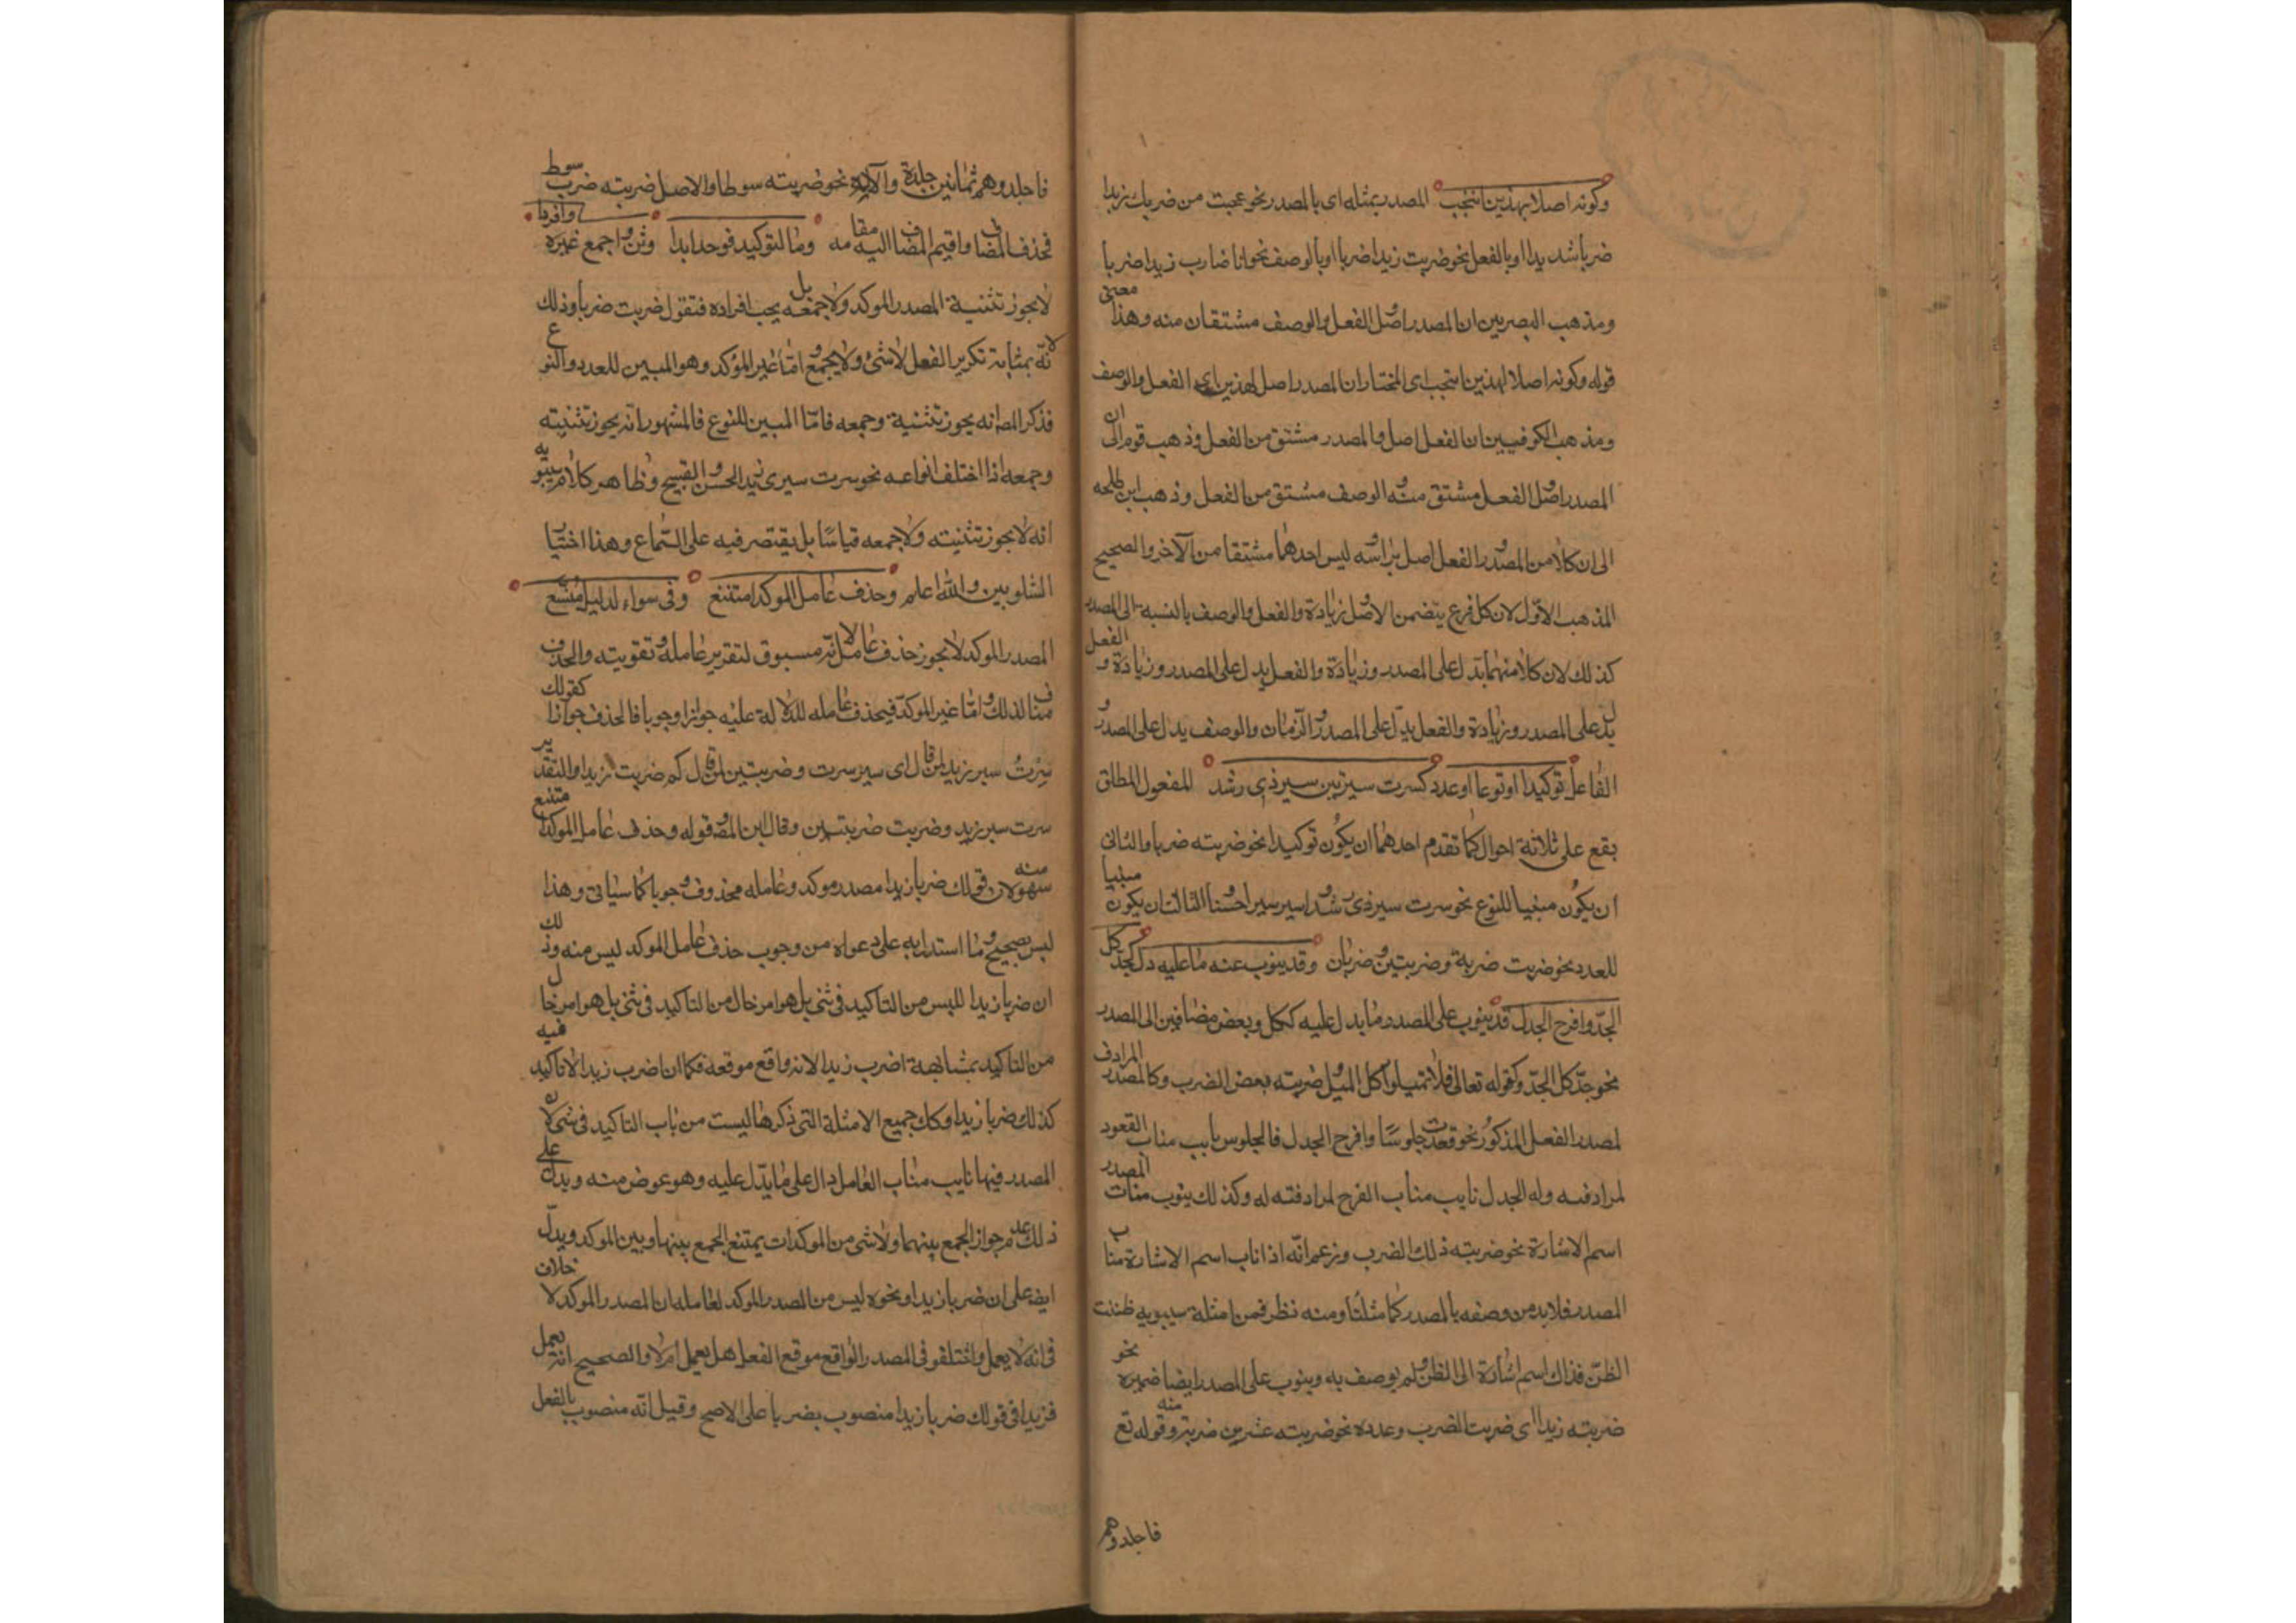 وكونه اصلا لهذين انتخب المصدر بمثله اى بالمصدر نحو عجبت من ضربك زيدا
ضربا شديدا او بالفعل نحو ضربت زيدا ضربا او بالوصف نحو انا ضارب زيدا ضربا
ومذهب البصريين ان المصدر اصل والفعل والوصف مشتقان منه وهذا معنى
قوله وكونه اصلا لهذين انتخب اى المختار ان المصدر اصل لهذين اى الفعل والوصف
ومذهب الكوفيين ان الفعل اصل والمصدر مشتق من الفعل وذهب قوم الى ان
المصدر اصل والفعل مشتق منه والوصف مشتق من الفعل وذهب ابن طلحه
الى ان كلا من المصدر والفعل اصل براسه ليس احدهما مشتقا من الآخر والصحيح
المذهب الاول لان كل فرع يتضمن الاصل وزيادة والفعل والوصف بالنسبة الى المصدر
كذلك لان كلا منهما يدل على المصدر وزيادة والفعل يدل على المصدر وزيادة و الفعل
يدل على المصدر وزيادة والفعل يدل على المصدر والزمان والوصف يدل على المصدر و
الفاعل توكيدا او نوعا او عدد كسرت سيرتين سير ذى رشد المفعول المطلق
يقع على ثلاثة احوال كما تقدم احدهما ان يكون توكيدا نحو ضربته ضربا والثانى
ان يكون مبنيا للنوع نحو سرت سير ذى رشد اسير سيرا حسنا الثالث ان يكون مبنيا
للعدد نحو ضربت ضربة وضربتين وضربان وقد ينوب عنه ما عليه دل كجد كل
الجدّ وافرح الجدل قد ينوب على المصدر ما يدل عليه ككل وبعض مضافين الى المصدر
نحو جدّ كل الجدّ وكقوله تعالى فلا تميلوا كل الميل وضربته بعض الضرب وكالمصدر المرادف
لمصدر الفعل المذكور نحو قعدت جلوسا وافرح الجدل فالجلوس نايب مناب القعود
لمرادفته وله الجدل نايب مناب الفرح لمرادفته له وكذلك ينوب منات المصدر
اسم الاشارة نحو ضربته ذلك الضرب وزعم انّه اذا ناب اسم الاشارة مناب
المصدر فلابد من وصفه بالمصدر كما مثلنا ومنه نظر فمن امثلة سيبويه ظننت
الظنّ فذاك اسم اشارة الى الظن ولم يوصف به وينوب على المصدر ايضا ضميره نحو
ضربته زيدا اى ضربت الضرب وعدده نحو ضربته عشرين ضربة وقوله تع منه
فاجلدوهم
فاجلدوهم ثمانين جلدة والآله نحو ضربته سوطا والاصل ضربته ضرب سوط
فحذف المضاف واقيم المضاف اليه مقامه وما لتوكيد فوحد ابدا وثن واجمع غيره وافردا
لا يجوز تثنية المصدر الموكد ولا جمعه بل يجب افراده فتقول ضربت ضربا وذلك
لانّه بمثابة تكرير الفعل لا يثنى ولا يجمع و امّا غير المؤكد وهو المبين للعدد والنوع
فذكر المص انه يجوز تثنية وجمعه فامّا المبين للنوع فالمشهور انّه يجوز تثنيته
وجمعه اذا اختلف انواعه نحو سرت سيرى زيد الحسن والقبيح وظاهر كلام سيبويه
انه لا يجوز تثنيته ولا جمعه قياسا بل يقتصر فيه على السّماع وهذا اختيار
الشلوبين والله اعلم وحذف عامل الموكد امتنع وفى سواه لدليل متّسع
المصدر الموكد لا يجوز حذف عامله لانّه مسبوق لتقرير عامله وتقويته والحذف
مناف لذلك وامّا غير الموكدّ فيحذف عامله للدلالة عليه جوازا ووجوبا فالحذف جوازا كقولك
سرت سير زيد لمن قال اى سير سرت وضربتين لمن قال كم ضربت زيدا والتقدير
سرت سير زيد وضربت ضربتين وقال ابن المص قوله وحذف عامل الموكد امتنع
سهو منه لان قولك ضربا زيدا مصدر موكد وعامله محذوف وجوبا كما سياتى وهذا
ليس بصحيح وما استدل به على دعواه من وجوب حذف عامل الموكد ليس منه وذلك
ان ضربا زيدا لليس من التاكيد فى شئ بل هو امر خال من التاكيد فى شئ بل هو امر خال
من التاكيد بمشابهة اضرب زيدا لانه واقع موقعه فكما ان اضرب زيدا لا تاكيد فيه
كذلك ضربا زيدا وكك جميع الامثلة التى ذكرها ليست من باب التاكيد فى شئ لان
المصدر فيها نايب مناب العامل دال على ما يدّل عليه وهو عوض منه ويدل على
ذلك عدم جواز الجمع بينهما ولا شى من الموكدات يمتنع الجمع بينها وبين الموكد ويدلّ
ايضا على ان ضربا زيدا ونحوه ليس من المصدر الموكد لعامله ان المصدر الموكد لا خلاف
فى انه لا يعمل واختلفو فى المصدر الواقع موقع الفعل هل يعمل ام لا والصحيح انّه يعمل
فزيدا فى قولك ضربا زيدا منصوب بضربا على الاصح وقيل انّه منصوب بالفعل